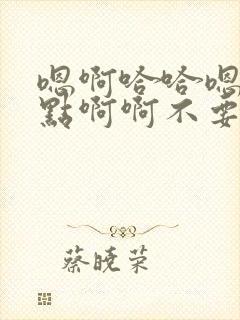 嗯啊哈哈嗯
點啊啊不要
蔡曉荣